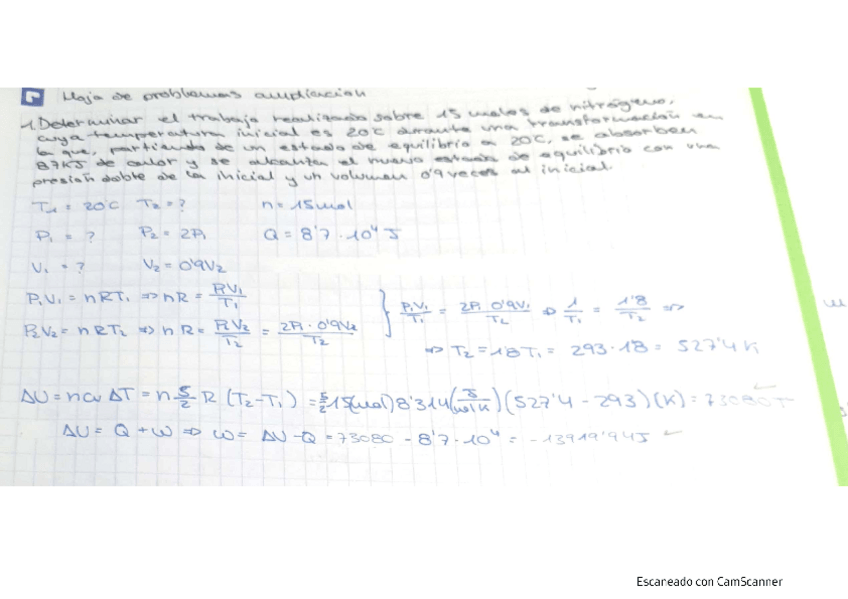 Hoja de problemas ampliación
1. Determinar el trabajo realizado sobre 15 moles de nitrógeno,
cuya temperatura inicial es 20°C durante una transformación en
la que, partiendo de un estado de equilibrio a 20°C, se absorben
87KJ de calor y se alcanza el nuevo estado de equilibrio con una
presión doble de la inicial y un volumen 0'9 veces al inicial.
T₁ = 20°C T₂ = ? n = 15 mol
P₁ = ? P₂ = 2P₁ Q = 8'7 · 10⁴ J
V₁ = ? V₂ = 0'9V₂
P₁V₁ = nRT₁ ⇒ nR = P₁V₁/T₁
P₂V₂ = nRT₂ ⇒ nR = P₂V₂/T₂ = 2P₁ · 0'9V₂/T₂ } P₁V₁/T₁ = 2P₁ 0'9V₁/T₂ ⇒ 1/T₁ = 1'8/T₂ ⇒
⇒ T₂ = 1'8T₁ = 293 · 1'8 = 527'4 K
ΔU = ncv ΔT = n 5/2 R (T₂ - T₁) = 5/2 15(mol) 8'314 (J/mol K) (527'4 - 293) (K) = 73080 J
ΔU = Q + W ⇒ W = ΔU - Q = 73080 - 8'7 · 10⁴ = - 13919'94J
Escaneado con CamScanner